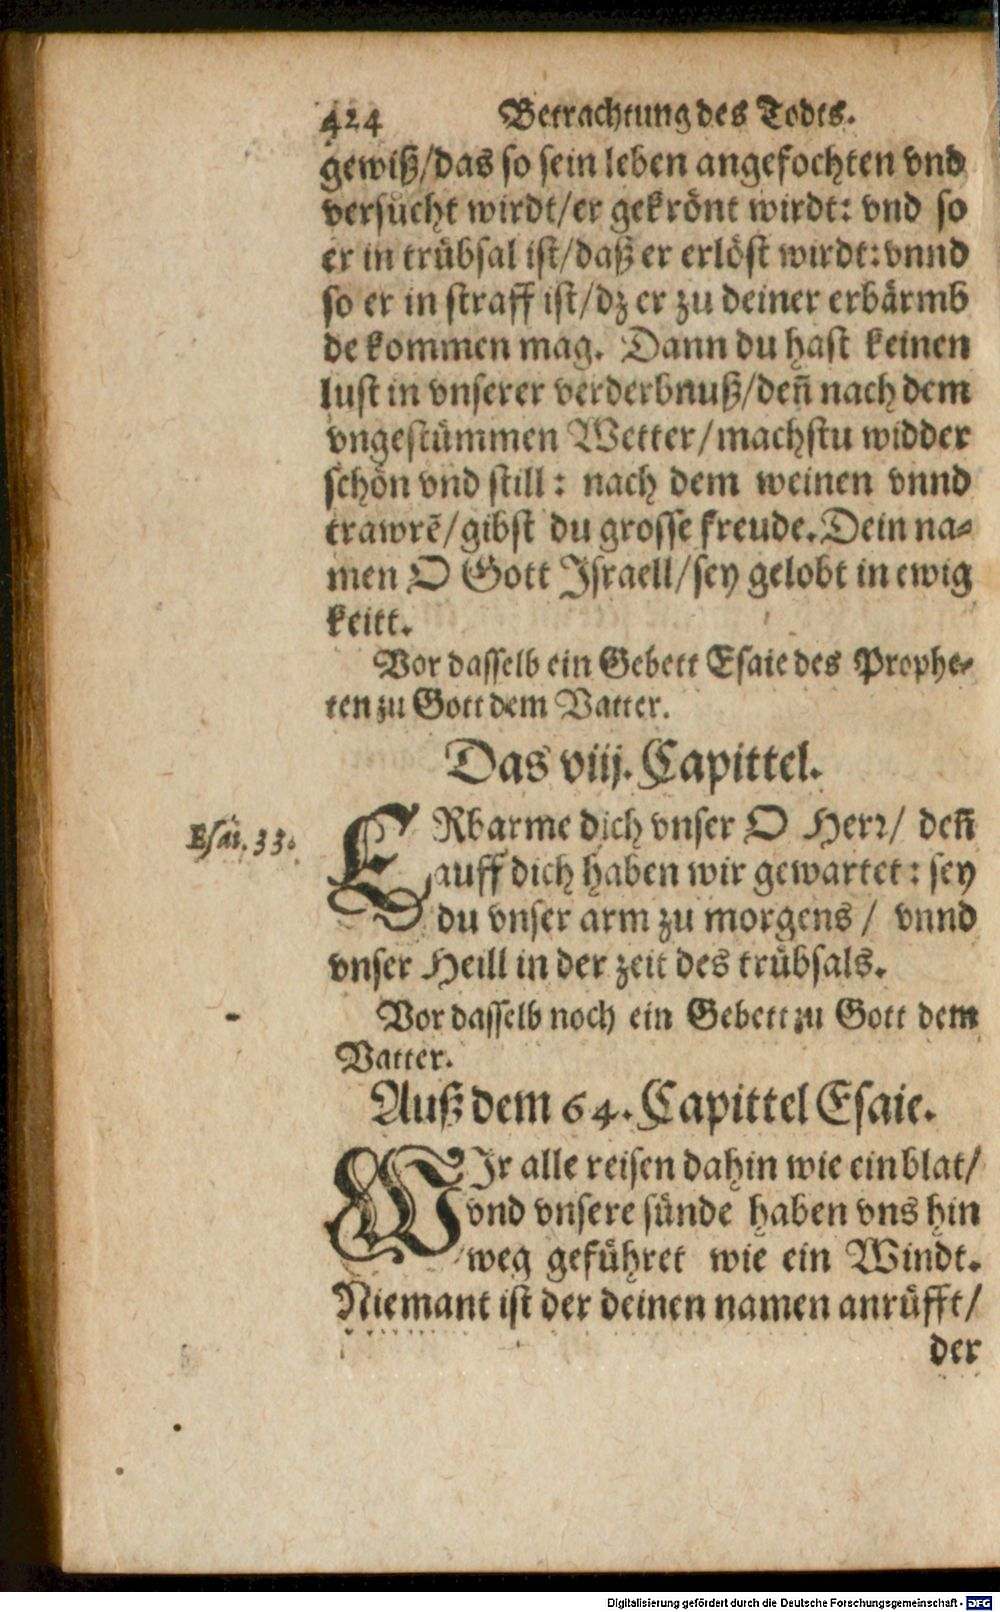 424 Betrachtung des Todts.
gewiß/das so sein leben angefochten vnd
versucht wirdt/er gekrönt wirdt: vnd so
er in trübsal ist/daß er erlöst wirdt: vnnd
so er in straff ist/dz er zu deiner erbärmb
de kommen mag. Dann du hast keinen
lust in vnserer verderbnuß/deñ nach dem
vngestümmen Wetter/machstu widder
schön vnd still: nach dem weinen vnnd
trawrē/gibst du grosse freude. Dein na-
men O Gott Israell/sey gelobt in ewig
keitt.
Vor dasselb ein Gebett Esaie des Prophe-
ten zu Gott dem Vatter.
Das viij. Capittel.
Esai. 33.
ERbarme dich vnser O Herr/ deñ
auff dich haben wir gewartet: sey
du vnser arm zu morgens/ vnnd
vnser Heill in der zeit des trübsals.
Vor dasselb noch ein Gebett zu Gott dem
Vatter.
Auß dem 64. Capittel Esaie.
WIr alle reisen dahin wie ein blat/
vnd vnsere sünde haben vns hin
weg geführet wie ein Windt.
Niemant ist der deinen namen anrüfft/
der
Digitalisierung gefördert durch die Deutsche Forschungsgemeinschaft - DFG